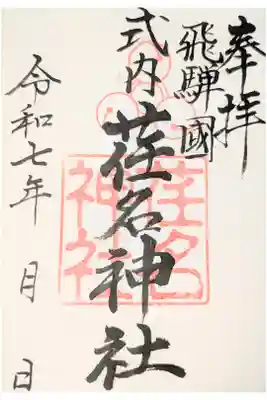 奉拝
飛騨國
式内 荏名神社
令和七年 月 日
荏名
神社